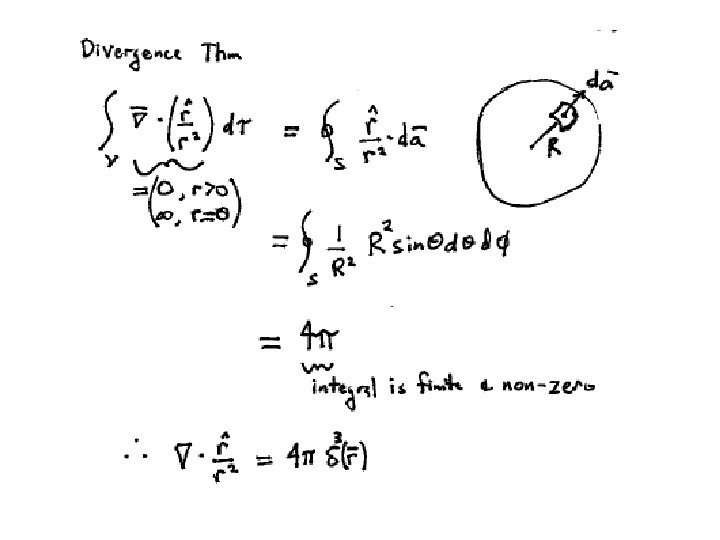 Divergence Thm
∫_V ∇̄ · (r̂/r²) dτ = ∮_S r̂/r² · dā
= (0, r>0
∞, r=0)
dā
R
= ∮_S 1/R² R² sinθ dθ dϕ
= 4π
integral is finite & non-zero
∴ ∇ · r̂/r² = 4π δ³(r̄)